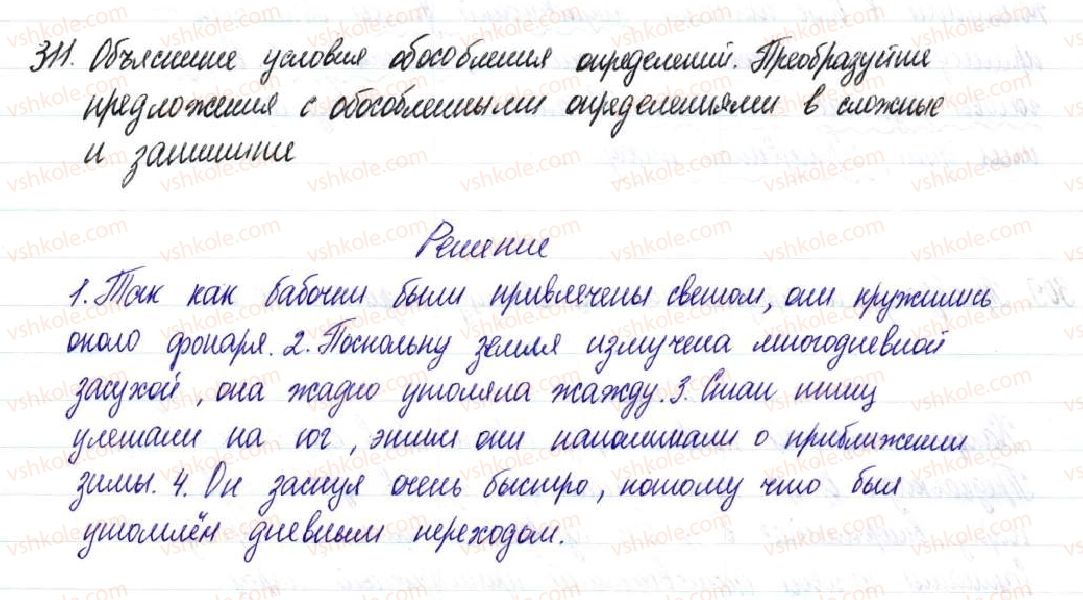 311. Объясните условия обособления определений. Преобразуйте
предложения с обособленными определениями в сложные
и запишите
Решение
1. Так как бабочки были привлечены светом, они кружились
около фонаря. 2. Поскольку земля измучена многодневной
засухой, она жадно утоляла жажду. 3. Стаи птиц
улетали на юг, этим они напоминали о приближении
зимы. 4. Он заснул очень быстро, потому что был
утомлён дневным переходом.
vshkole.com